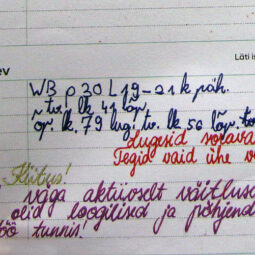 Läti is
ev
WB p 30 L 19-21 k päh.
tv. lk 41 lõp.
õp. lk. 79 lug. tv. lk 50 lõp. to
Lugesid sorava
Tegid vaid ühe v
Kiitus!
väga aktiivselt väitlusa
olid loogilised ja põhjend
öö tunnis!